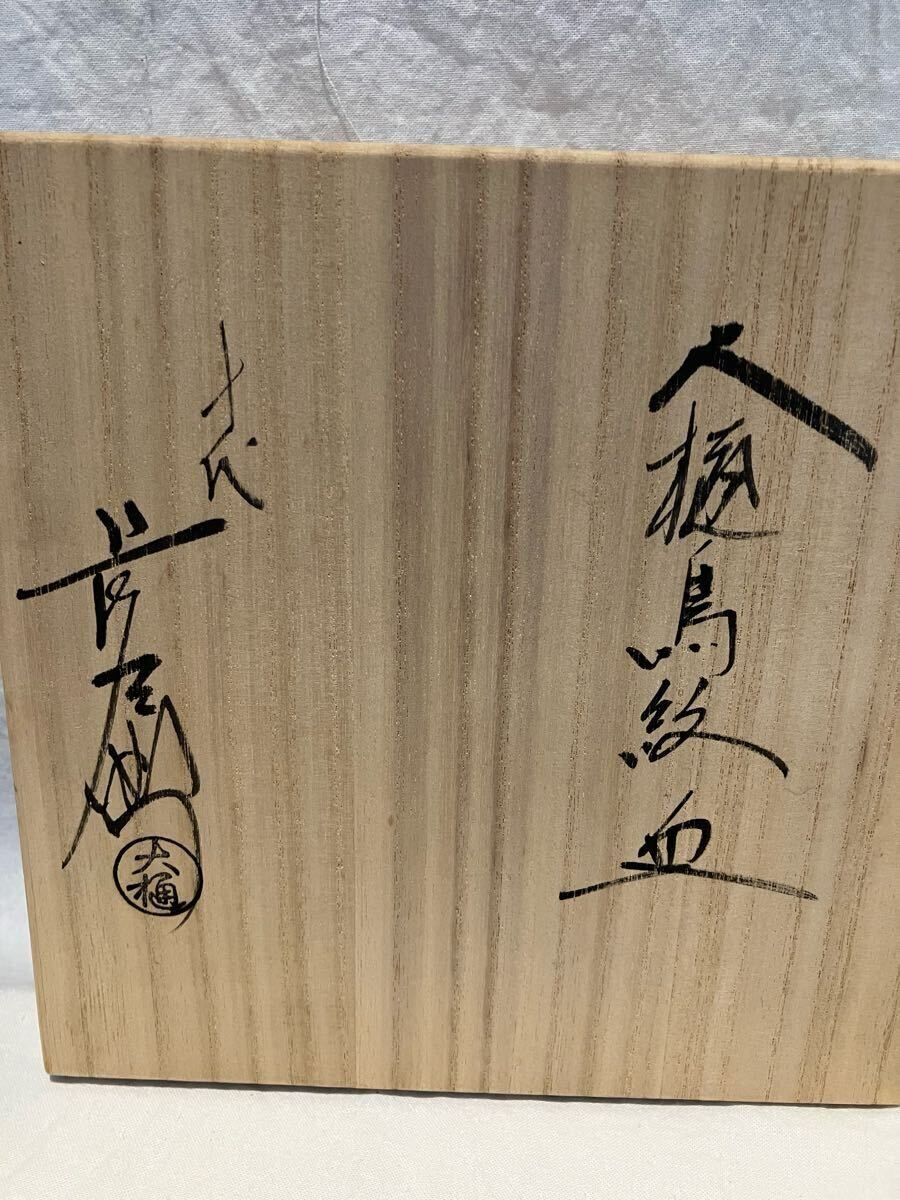 大樋鳥紋皿
十代
長左衛門
大樋